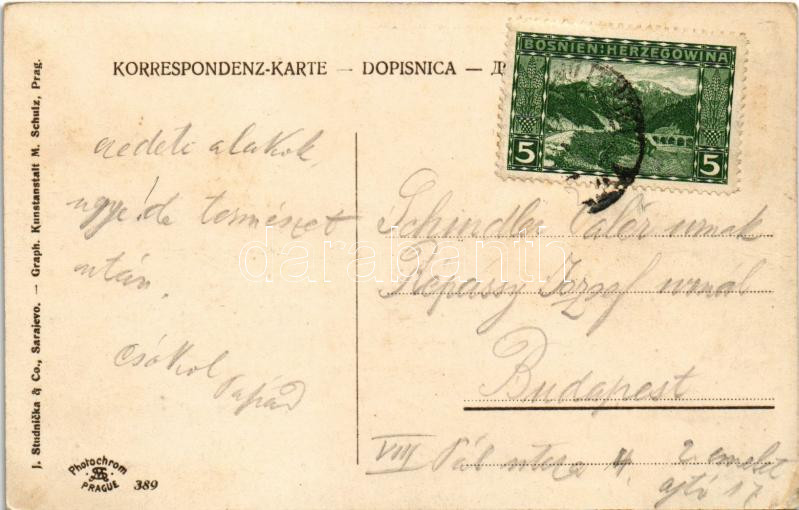 KORRESPONDENZ-KARTE — DOPISNICA —
BOSNIEN-HERZEGOWINA
5 5
eredeti alakok,
ugye! de természet
után.
Csókol
Schindler Valér urnak
Répássy József urnál
Budapest
VIII Pál utcza 4. 2 emelet
ajtó 17
J. Studnička & Co., Sarajevo. — Graph. Kunstanstalt M. Schulz, Prag.
Photochrom
PRAGUE
389
darabanth